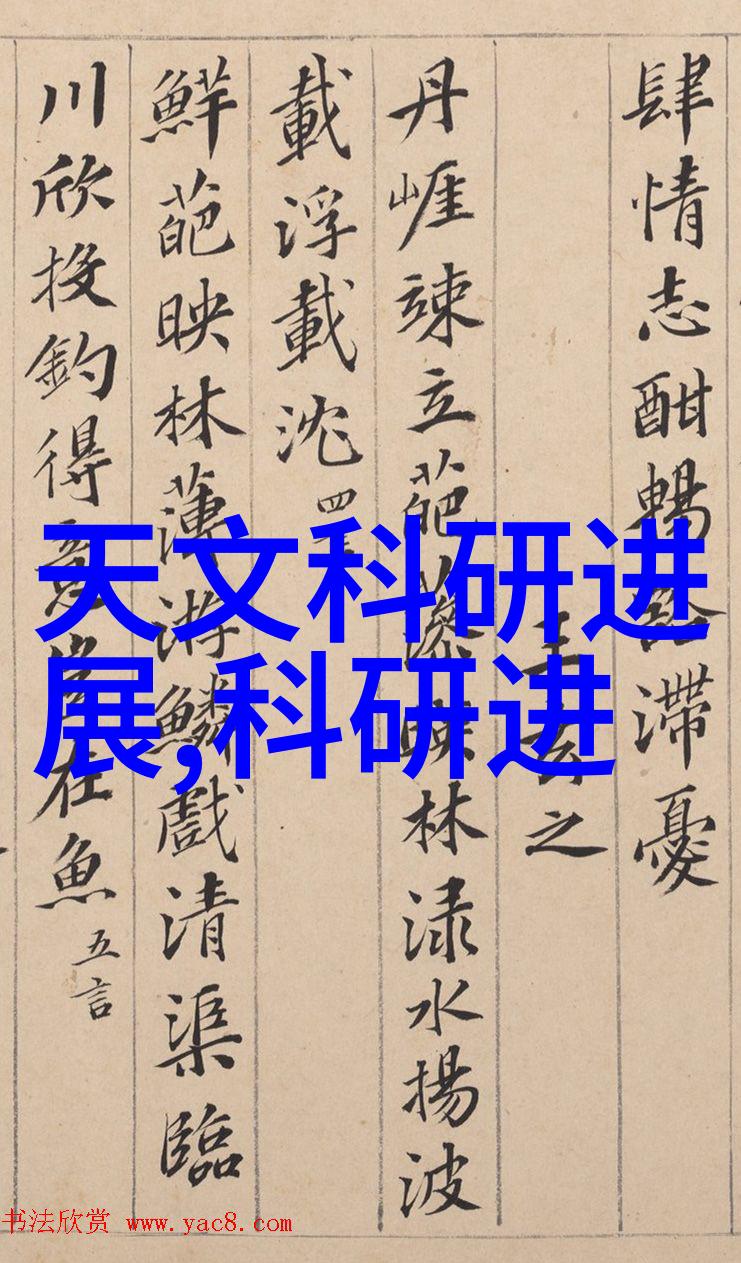 肆情志酣暢滯憂
王玄之
丹崖竦立葩藻暎林渌水揚波
載浮載沈 四言
鮮葩映林薄游鱗戲清渠臨
川欣投釣得意豈在魚 五言
天文科研进
展,科研进
书法欣赏 www.yac8.com